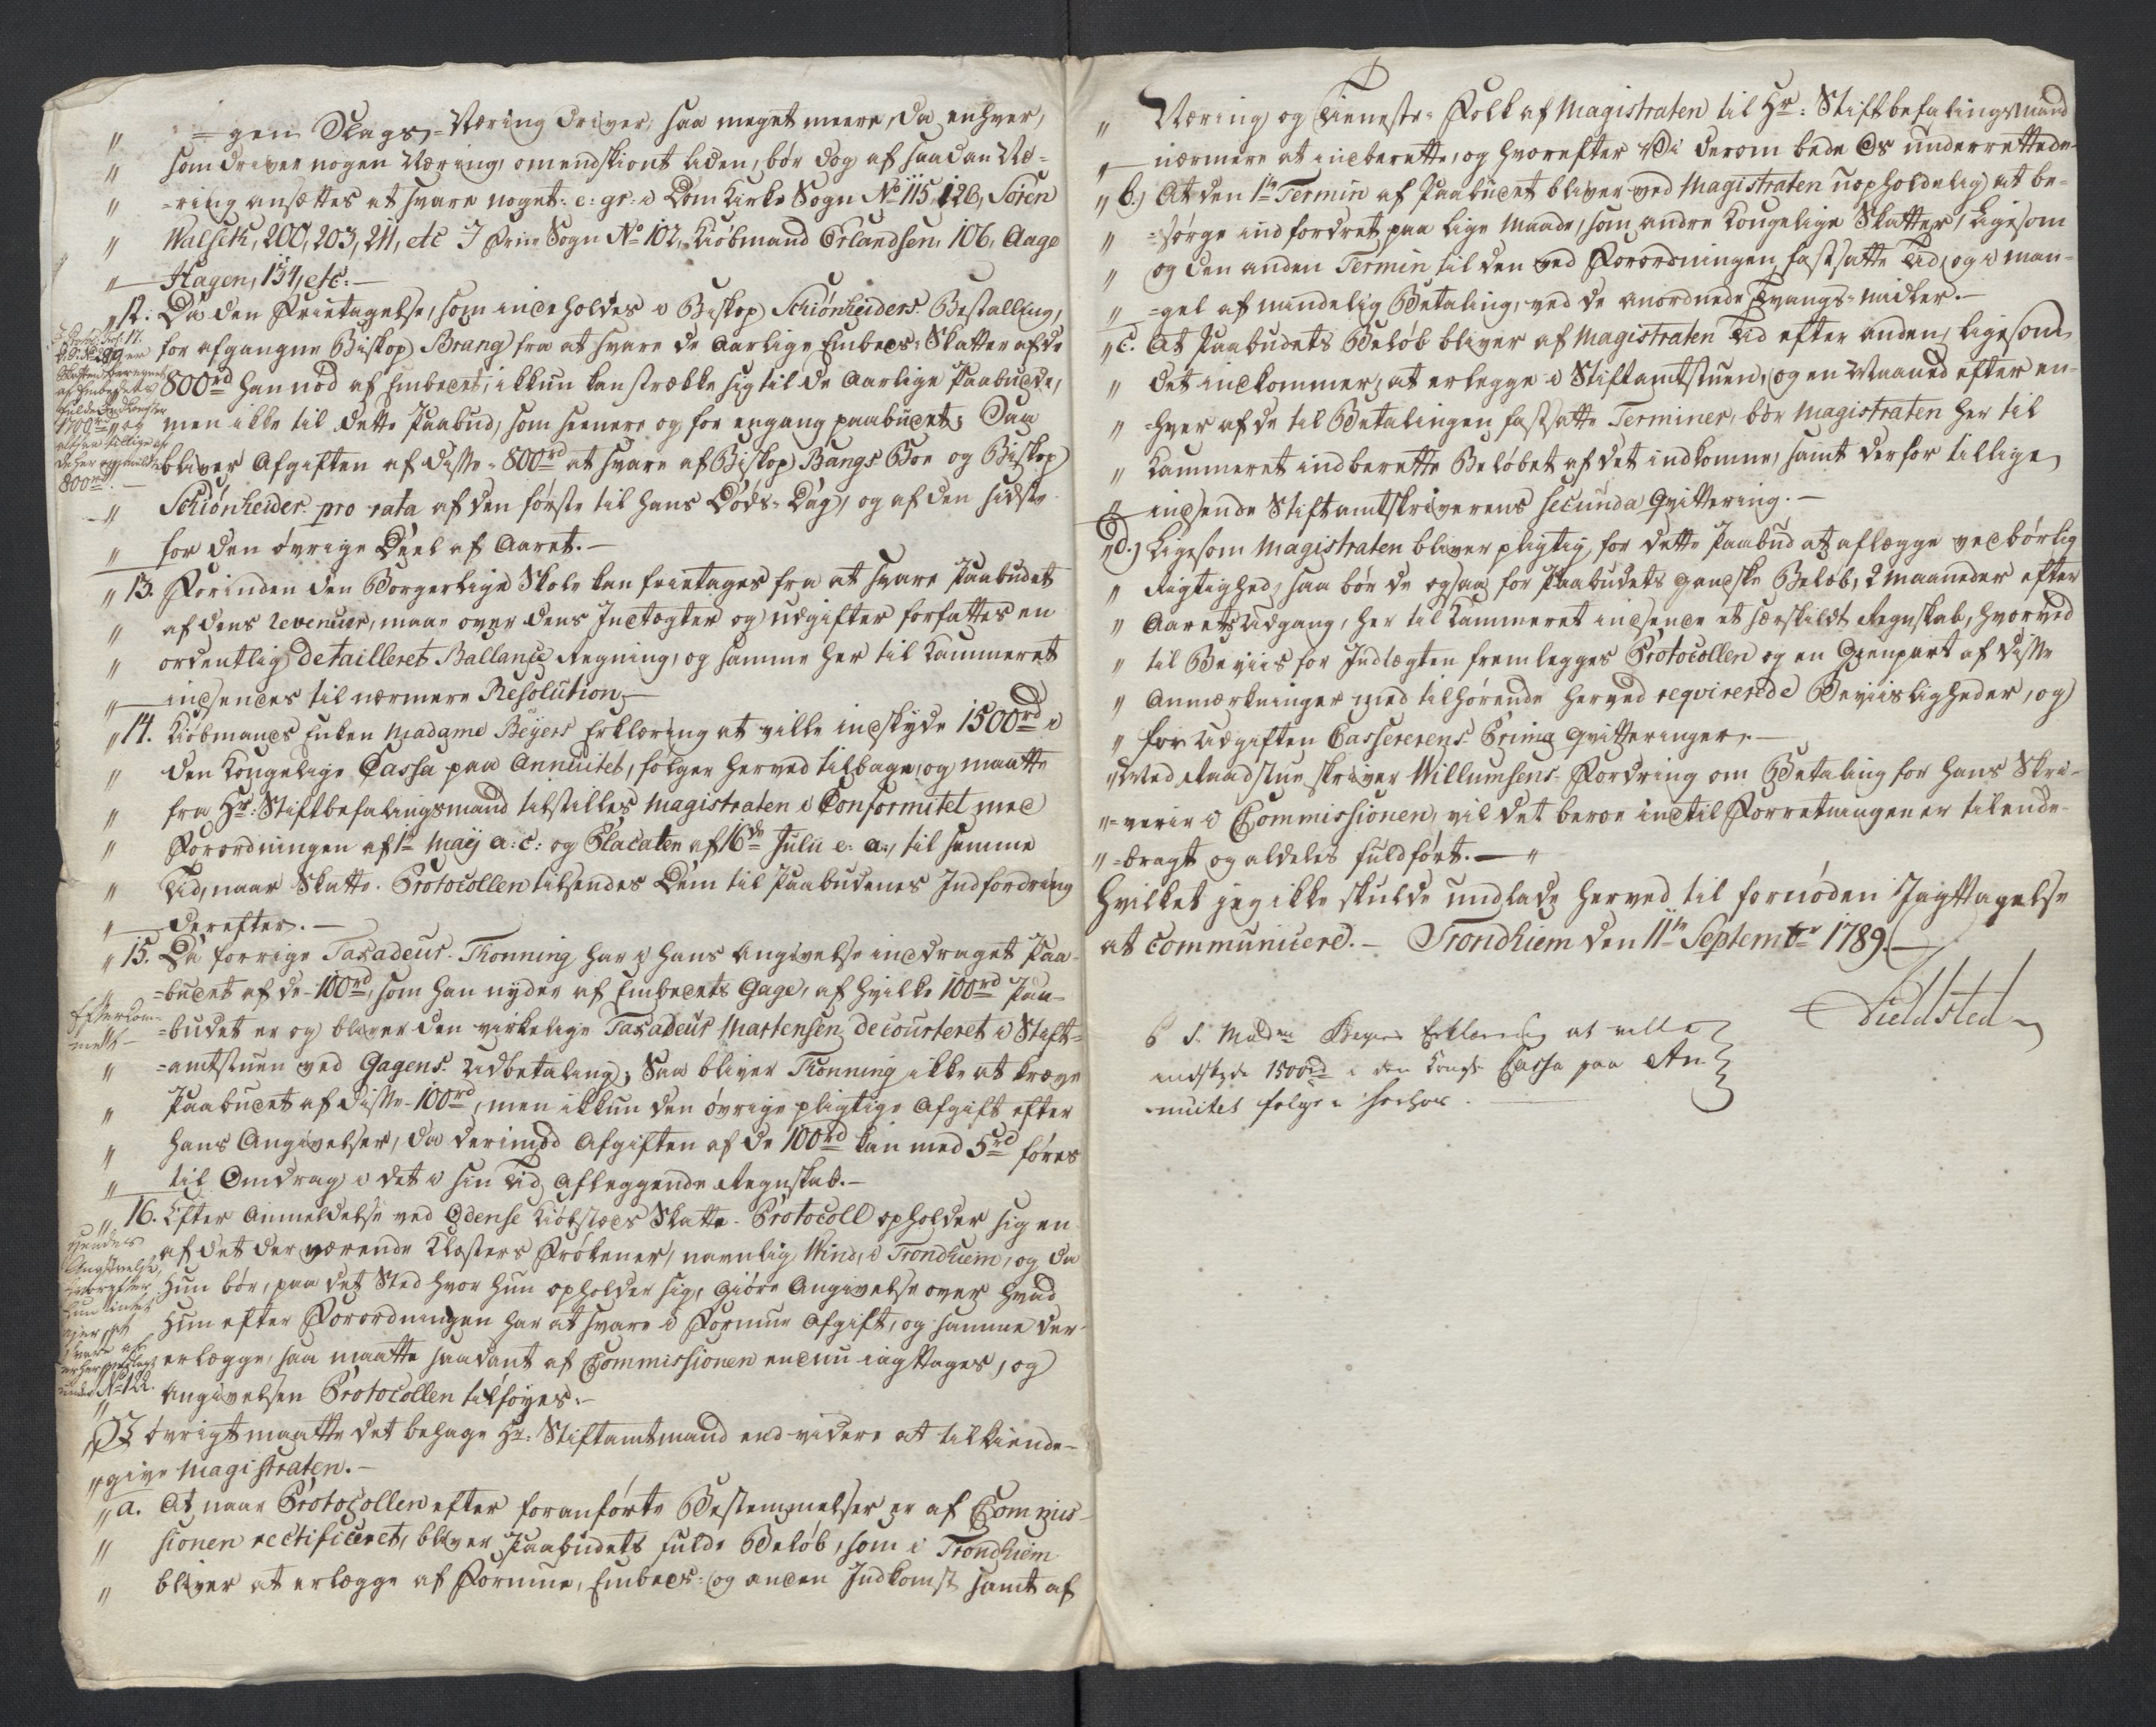 " =gen Slags-Næring driver, saa meget meere, da enhver,
" som driver nogen Næring, omendskiønt liden, bør dog af saadan Næ-
" =ring ansættes at svare noget: e: gr: i Dom Kirke Sogn No 115, 126, Søren
" Walseth, 200, 203, 211, etc I Frue Sogn No 102, Kiøbmand Erlandsen, 106, Aage
" Hagen, 134, etc: —
" 12. Da den Frietagelse, som indeholdes i Biskop Schiønheiders Bestalling,
" for afgangne Biskop Bang fra at svare de aarlige Embeds-Skatter af de
800rd han nød af Embedet, ikkun kan strække sig til de aarlige Paabude,
" men ikke til dette Paabud, som seenere og for engang paabudet; Saa
bliver Afgiften af disse 800rd at svare af Biskop Bangs Boe og Biskop
" Schiønheider pro rata af den første til hans Døds-Dag, og af den sidste
" for den øvrige Deel af Aaret. —
" 13. Forinden den Borgerlige Skole kan frietages fra at svare Paabudet
" af dens Revenuer, maae over dens Indtægter og Udgifter forfattes en
" ordentlig detailleret Ballance Regning, og samme her til Kammeret
" indsendes til nærmere Resolution —
" 14. Kiøbmands Enken Madame Beyers Erklæring at ville indskyde 1500rd i
" den Kongelige Cassa paa Annuitet, følger herved tilbage, og maatte
" fra Hr: Stiftbefalingsmand tilstilles Magistraten i Conformitet med
" Forordningen af 1te Maij a: c: og Placaten af 16de Julii e: a:, til samme
" Tid, naar Skatte-Protocollen tilsendes Dem til Paabudenes Indfordring
" derefter. —
" 15. Da forrige Taxadeur Thonning har i hans Angivelse inddraget Paa-
=budet af de 100rd, som han nyder af Embedets Gage, af hvilke 100rd Paa-
Efterkom-
mets —
=budet er og bliver den virkelige Taxadeur Martensen decourteret i Stift-
" =amtstuen ved Gagens Udbetaling; Saa bliver Thonning ikke at kræve
" Paabudet af disse 100rd, men ikkun den øvrige pligtige Afgift efter
" hans Angivelser, da derimod Afgiften af de 100rd kan med 5rd føres
" til Omdrag i det i sin Tid aflæggende Regnskab. —
" 16. Efter Anmeldelse ved Odense Kiøbstæds Skatte-Protocoll opholder sig en
af det der værende Klosters Frøkener, navnlig Wind, i Trondhiem, og da
Hun bør, paa det Sted hvor hun opholder sig, giøre Angivelse over hvad
Hun efter Forordningen har at svare i Formue Afgift, og samme der
erlægge, saa maatte saadant af Commissionen endnu iagttages, og
Angivelsen Protocollen tilføyes. —
hendes
Angivelse,
hvorefter
hun intet
eier at
svare af
er her indlagt
under No 122.
I øvrigt maatte det behage Hr: Stiftamtmand end videre at tilkiende-
" give Magistraten. —
" a. At naar Protocollen efter foranførte Bestemmelser er af Commis-
" sionen rectificeret, bliver Paabudets fulde Beløb, som i Trondhiem
" bliver at erlægge af Formue, Embeds- og anden Indkomst samt af
" Næring og Tieneste-Folk af Magistraten til Hr: Stiftbefalingsmand
" nærmere at indberette, og hvorefter Vi derom bede Os underrettede
" b.) At den 1te Termin af Paabudet bliver ved Magistraten uopholdelig at be-
" =sørge indfordret paa lige Maade, som andre Kongelige Skatter, ligesom
" og den anden Termin til den ved Forordningen fastsatte Tid, og i man-
" =gel af mindelig Betaling, ved de anordnede Tvangs-Midler. —
" c. At Paabudets Beløb bliver af Magistraten Tid efter anden, ligesom
" det indkommer, at erlegge i Stiftamtstuen, og en Maaned efter en-
" =hver af de til Betalingen fastsatte Terminer, bør Magistraten her til
" Kammeret indberette Beløbet af det indkomne, samt derfor tillige
" indsende Stiftamtskriverens secunda Qvittering. —
" d.) Ligesom Magistraten bliver pligtig, for dette Paabud at aflægge vedbørlig
" Rigtighed, saa bør de ogsaa for Paabudets gandske Beløb, 2 Maaneder efter
" Aarets Udgang, her til Kammeret indsende et særskildt Regnskab, hvorved
" til Beviis for Indtægten fremlegges Protocollen og en Gienpart af disse
" Anmærkninger med tilhørende herved reqvirerede Beviisligheder, og
" for Udgiften Cassererens Prima Qvitteringer. —
" Med Raadstueskriver Willumsens Fordring om Betaling for hans Skri-
" =verie i Commissionen, vil det beroe indtil Forretningen er tilende-
" =bragt og aldeles fuldført. — "
Hvilket jeg ikke skulde undlade herved til fornøden Iagttagelse
at communicere. — Trondhiem den 11te Septembr 1789. —
Fieldsted
P S. Madme Beyers Erklæring at ville
indskyde 1500rd i den Kongl. Cassa paa An-
nuitet følger herhos. —